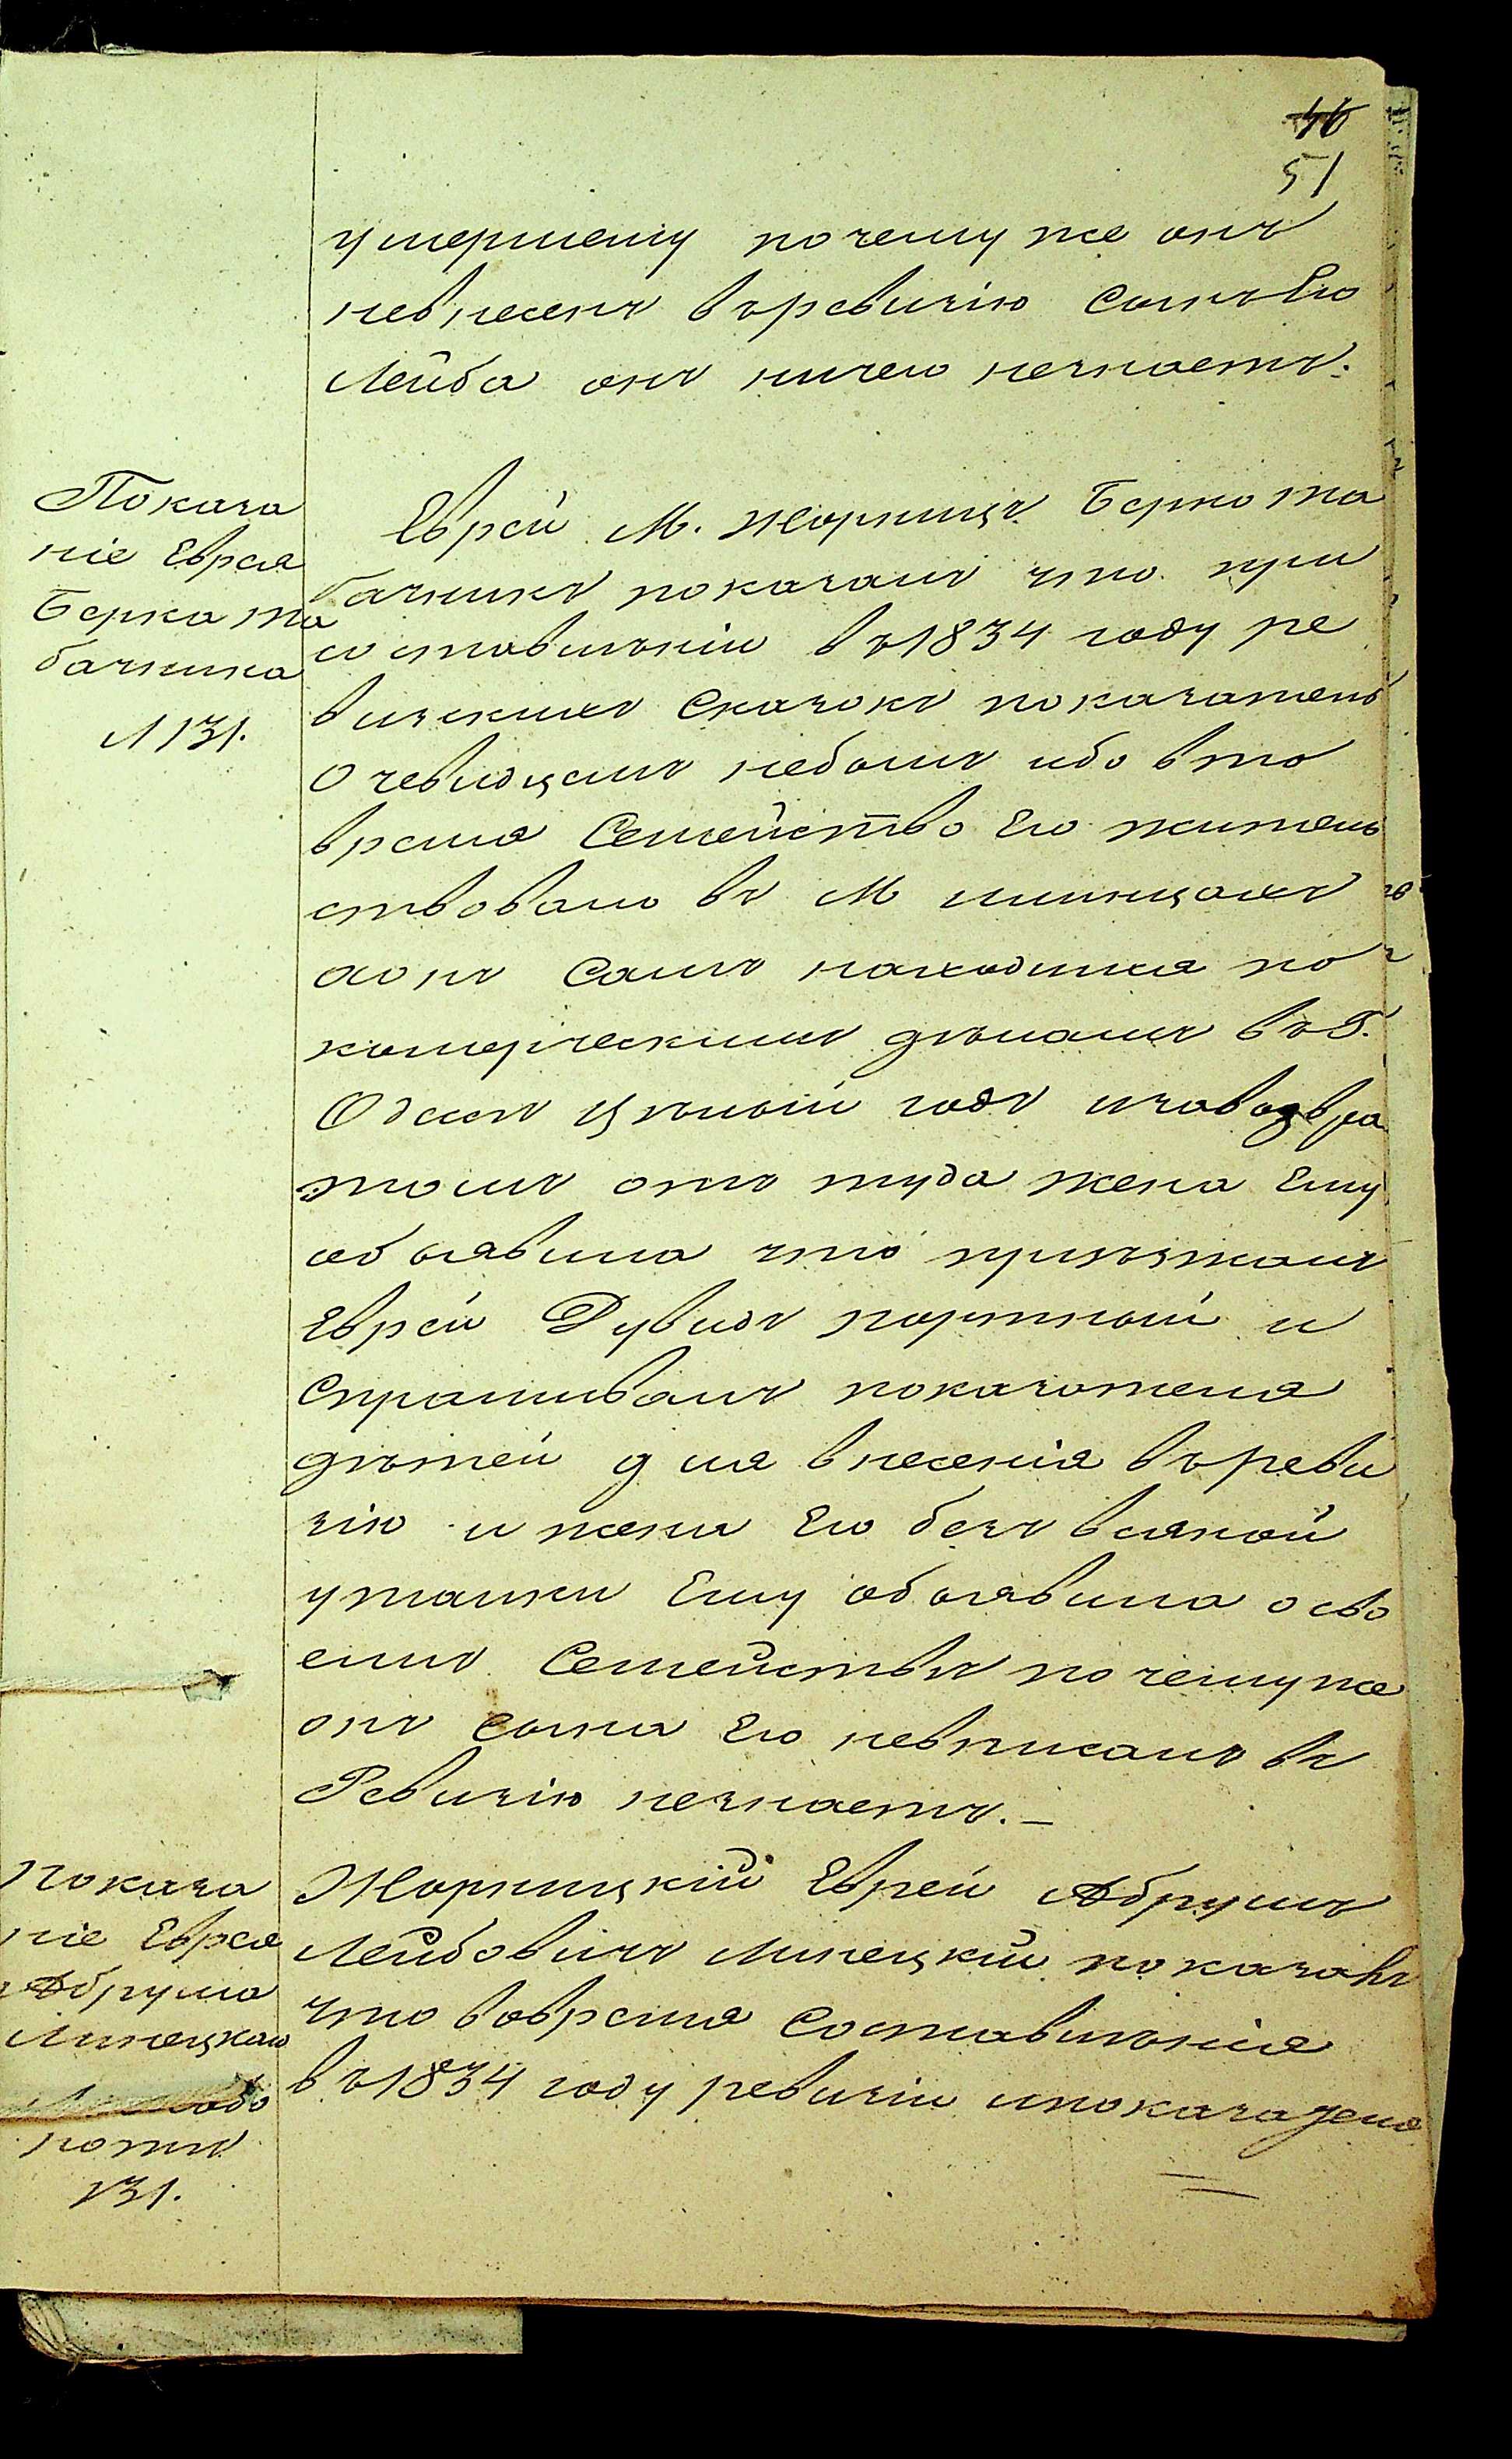 46
51
умершему почему же онъ
невнесенъ въревизію Сынъ Его
Лейба онъ ничего незнаетъ.
Показа
ніе Еврея
Берка та
бачника
Л 131.
Еврей М. Жорнищъ Берко та
бачникъ показалъ что при
составленіи въ1834 году ре
визскихъ Сказокъ показатель
Очевидцемъ небылъ ибо вто
время Семейство Его житель
ствовало въ М
аонъ Самъ находился по
комерческимъ дѣламъ въГ.
Одессѣ цѣлый годъ изавозвра
томъ отъ туда жена Ему
объявила что приѣзжалъ
Еврей Дувидъ портный и
Спрашивалъ показателя
дѣтей для внесенія въреви
зію и жена Его безъ всякой
утайки Ему объявила осво
емъ Семействѣ почемуже
онъ Сына Его невписалъ въ
Ревизію незнаетъ.—
Показа
ніе Еврея
Абрума
Липецкаго
на обо
ротѣ
131.
Жорнищкій Еврей Абрумъ
Лейбовичъ Липецкій показалъ
что вовремя Составленія
въ1834 году ревизіи